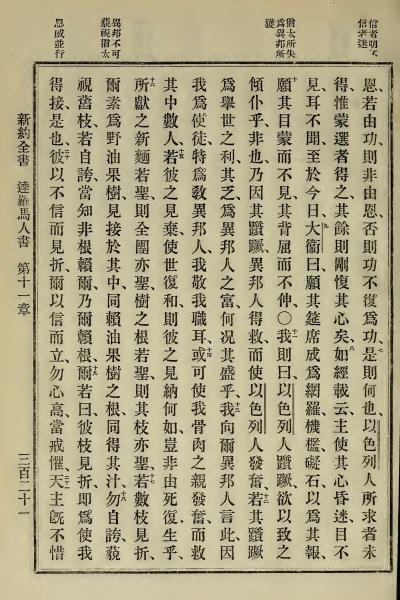 信者明不
信者迷
猶太所失
爲異邦所
獲
異邦不可
藐視猶太
恩威並行
恩若由功則非由恩否則功不復爲功是則何也以色列人所求者未
得惟蒙選者得之其餘則剛愎其心矣如經載云主使其心昏迷目不
見耳不聞至於今日大衞曰願其筵席成爲網羅機檻礙石以爲其報
願其目蒙而不見其背屈而不伸〇我則曰以色列人躓蹶欲以致之
傾仆乎非也乃因其躓蹶異邦人得救而使以色列人發奮若其躓蹶
爲舉世之利其乏爲異邦人之富何况其盛乎我向爾異邦人言此因
我爲使徒特爲敎異邦人我敬我職耳或可使我骨肉之親發奮而救
其中數人若彼之見棄使世復和則彼之見納何如豈非由死復生乎
所獻之新麵若聖則全團亦聖樹之根若聖則其枝亦聖若數枝見折
爾素爲野油果樹見接於其中同賴油果樹之根同得其汁勿自誇藐
視舊枝若自誇當知非根賴爾乃爾賴根爾若曰彼枝見折即爲使我
得接是也彼以不信而見折爾以信而立勿心高當戒懼天主旣不惜
新約全書 達羅馬人書 第十一章 三百二十一